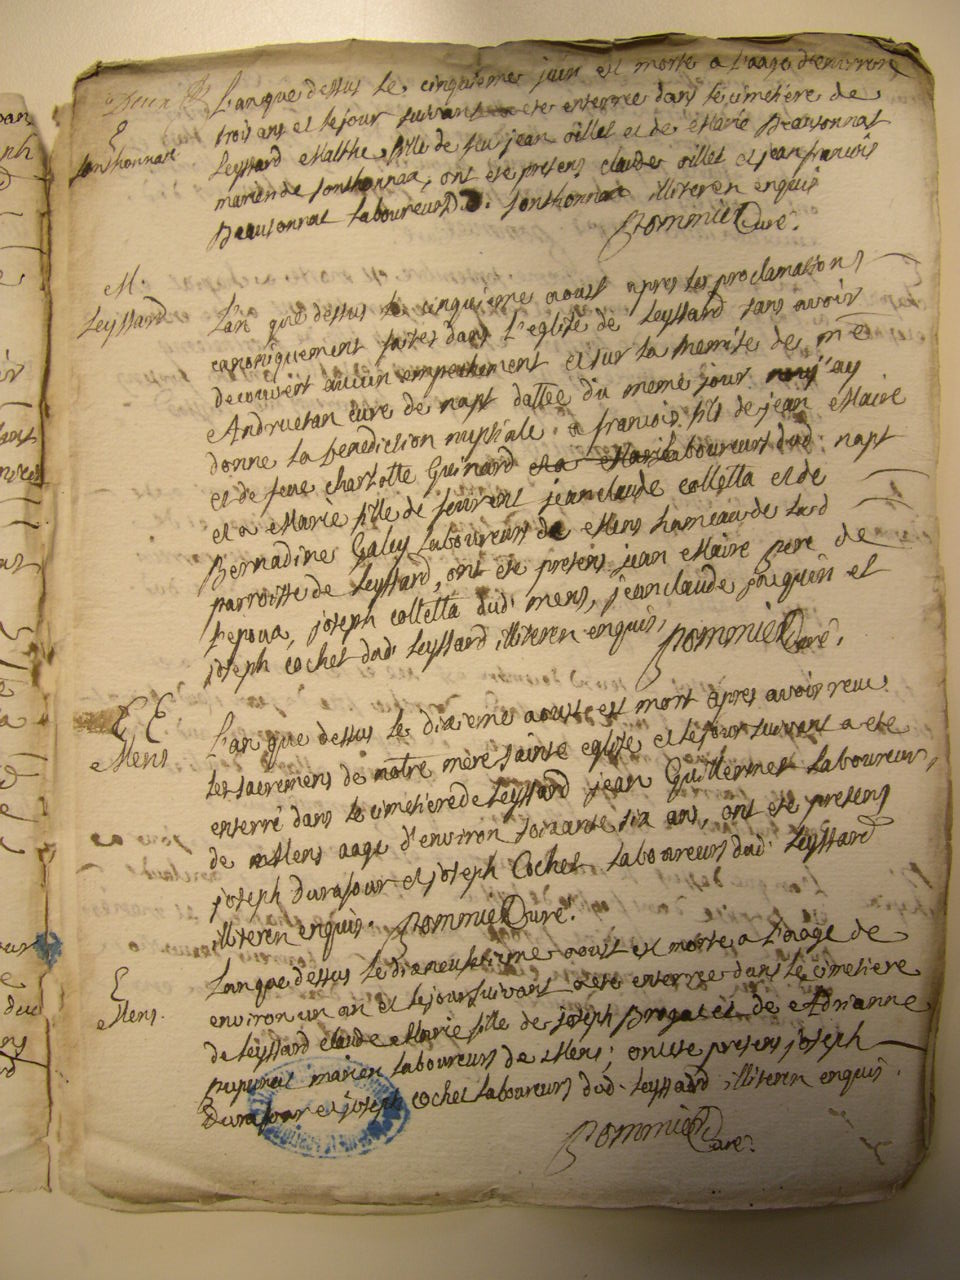 E
Sonthonnax
L'an que dessus le cinquieme juin est morte a l'aage d'environ
trois ans et le jour suivant a ete enterrée dans le cimetiere de
Leyssard Marthe fille de feu jean oillet et de Marie Beausonnat
marien de Sonthonnax, ont ete presens claude oillet et jean françois
Beausonnat Laboureurs de Sonthonnax illiteren enquis
Pommier Curé.
M.
Leyssard
L'an que dessus le cinquieme aoust apres les proclamations
canoniquement faites dans l'eglise de Leyssard sans avoir
decouvert aucun empechement et sur la remise de me
Andruetan curé de napt dattée du meme jour j'ay
donne la benediction nuptiale a francois fils de jean Maire
et de feue charlotte Guinard Laboureurs dud. napt
et a Marie fille de jeanclaude colletta et de
Bernadine Galey Laboureurs de Mens hameau de lad
parroisse de Leyssard, ont ete presens jean Maire pere de
l'epoux, joseph colletta dud. mens, jeanclaude joquin et
joseph cochet dud. Leyssard illiteren enquis,
Pommier Curé.
E E
Mens
L'an que dessus le dixieme aoust est mort apres avoir reçu
les sacremens de notre mère sainte eglise et le jour suivant a ete
enterré dans le cimetiere de Leyssard jean Guillermet Laboureur,
de Mens aagé d'environ soixante six ans, ont ete presens
joseph Durafour et joseph Cochet Laboureurs dud. Leyssard
illiteren enquis. Pommier Curé.
E
Mens.
L'an que dessus le dixneufvieme aoust est morte a l'aage de
environ un an et le jour suivant a ete enterrée dans le cimetiere
de Leyssard claude Marie fille de joseph Brogat et de Adrianne
mariен Laboureurs de Mens, ont ete presens joseph
Durafour et joseph cochet Laboureurs dud. Leyssard illiteren enquis.
Pommier Curé.